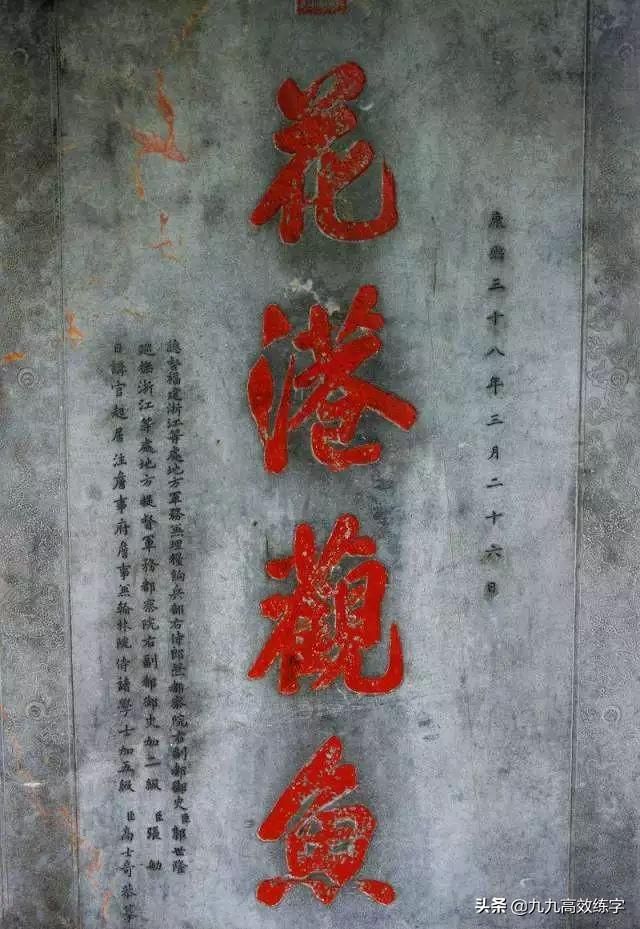 康熙三十八年三月二十六日
花港觀魚
總督福建浙江等處地方軍務兼理糧餉兵部右侍郎兼都察院右副都御史臣郭世隆
巡撫浙江等處地方提督軍務都察院右副都御史加一級臣張
日講官起居注詹事府詹事兼翰林院侍讀學士加五級臣高士奇恭摹
头条 @九九高效练字